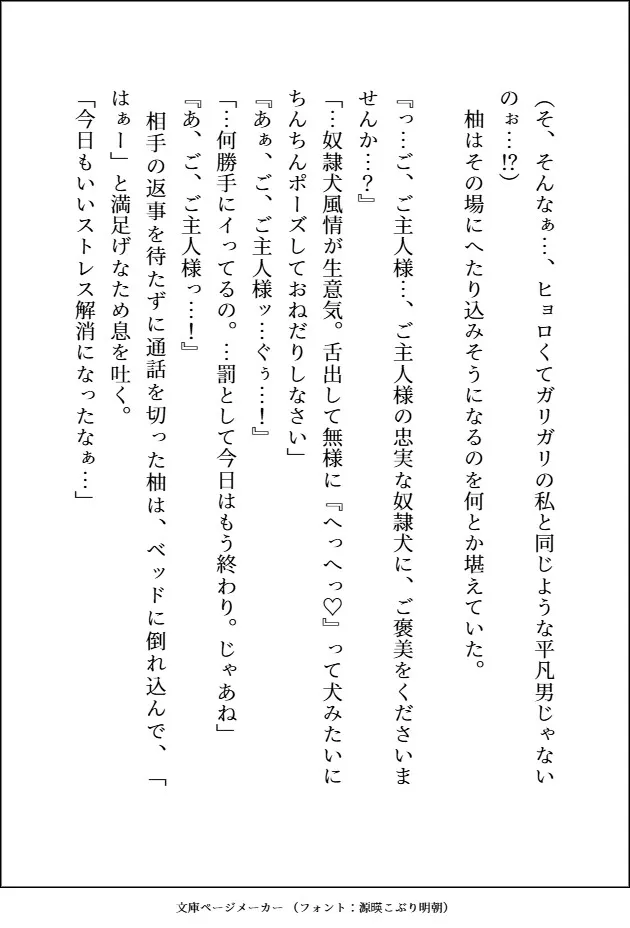 (そ、そんなぁ…、ヒョロくてガリガリの私と同じような平凡男じゃない
のぉ…!?)
柚はその場にへたり込みそうになるのを何とか堪えていた。
『っ…ご、ご主人様…、ご主人様の忠実な奴隷犬に、ご褒美をくださいま
せんか…?』
「…奴隷犬風情が生意気。舌出して無様に『へっへっ♡』って犬みたいに
ちんちんポーズしておねだりしなさい」
『あぁ、ご、ご主人様ッ…ぐぅ…!』
「…何勝手にイってるの。…罰として今日はもう終わり。じゃあね」
『あ、ご、ご主人様っ…!』
相手の返事を待たずに通話を切った柚は、ベッドに倒れ込んで、「
はぁー」と満足げなため息を吐く。
「今日もいいストレス解消になったなぁ…」
文庫ページメーカー(フォント:源暎こぶり明朝)